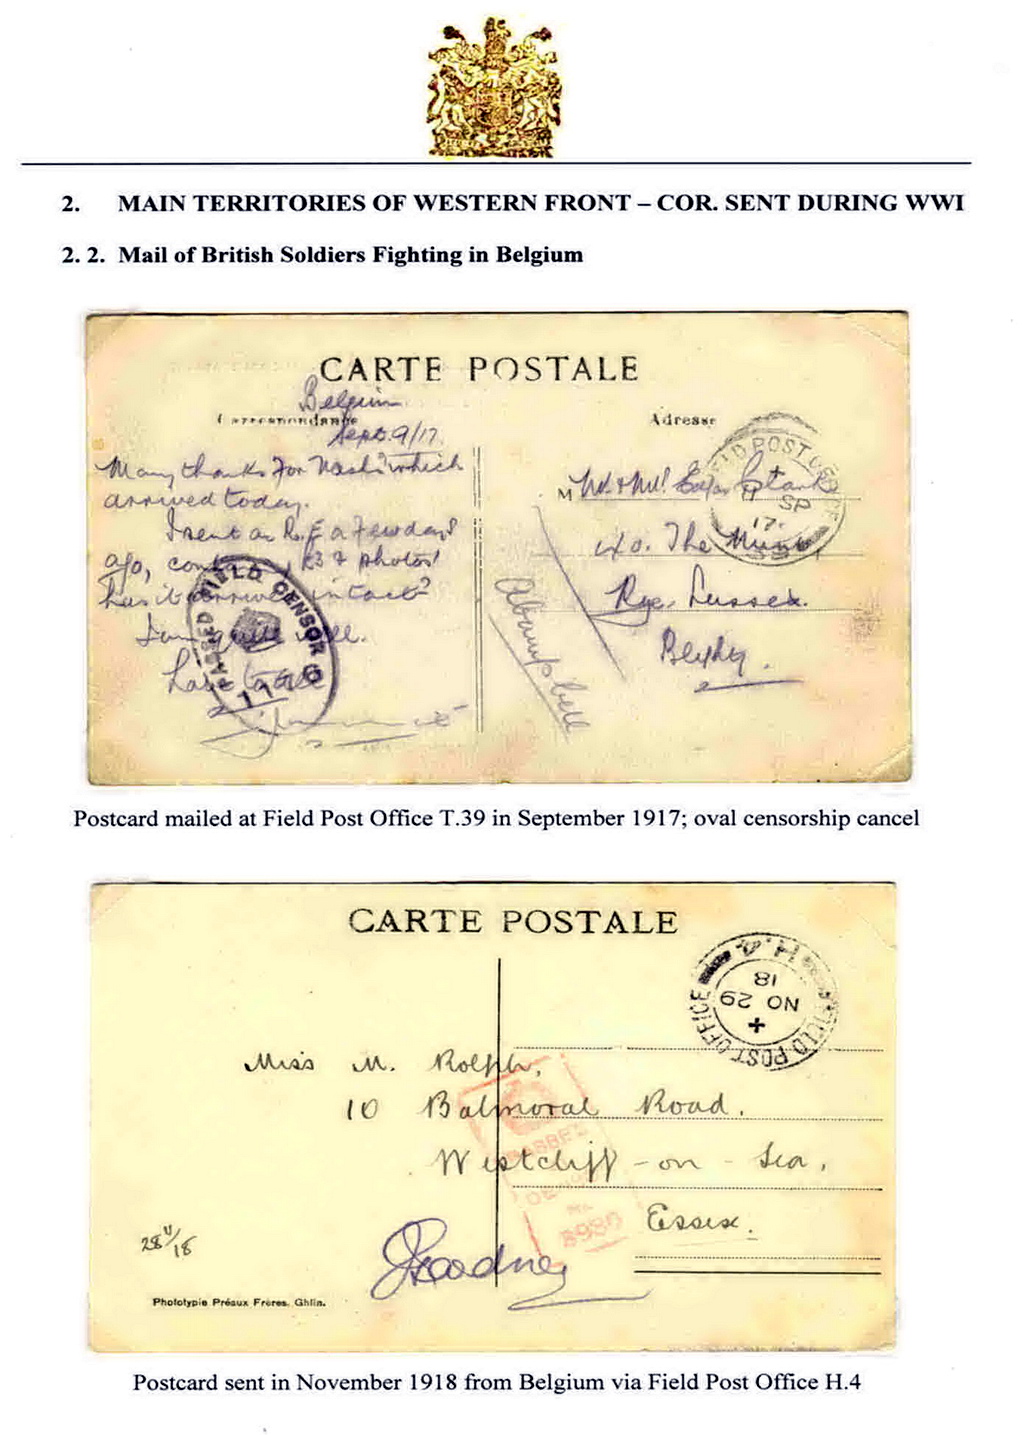 2. MAIN TERRITORIES OF WESTERN FRONT – COR. SENT DURING WWI
2. 2. Mail of British Soldiers Fighting in Belgium
CARTE POSTALE
Belgium
Correspondance
Adresse
Sept. 9/17.
Many thanks for Nash's which
arrived today.
I sent a
a few days
ago,
3 & photos!
has it arrived intact?
I am quite well.
Love to all
PASSED FIELD CENSOR
FIELD POST OFFICE
11 SP
17
M
c/o. The
Rye, Sussex.
Blighty.
ACampbell
Postcard mailed at Field Post Office T.39 in September 1917; oval censorship cancel
CARTE POSTALE
FIELD POST OFFICE H.4
NO 29
18
Miss M. Rolph,
10 Balmoral Road.
Westcliff - on - Sea,
Essex.
PASSED
28 11/18
Phototypie Préaux Frères, Ghlin.
Postcard sent in November 1918 from Belgium via Field Post Office H.4